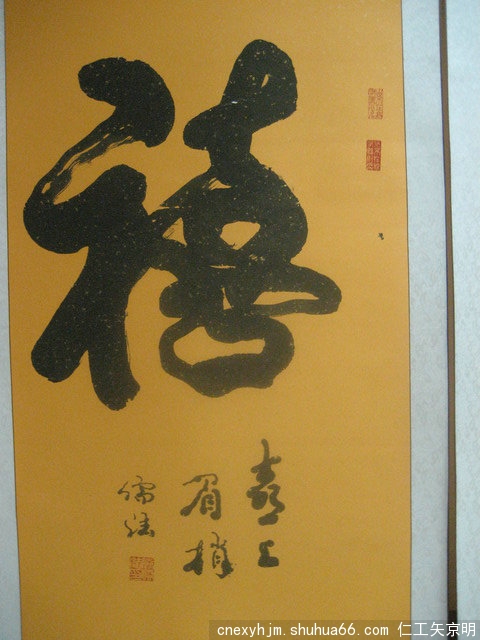 禧
喜上
眉梢
儒
cnexyhjm.shuhua66.com 仁工矢京明